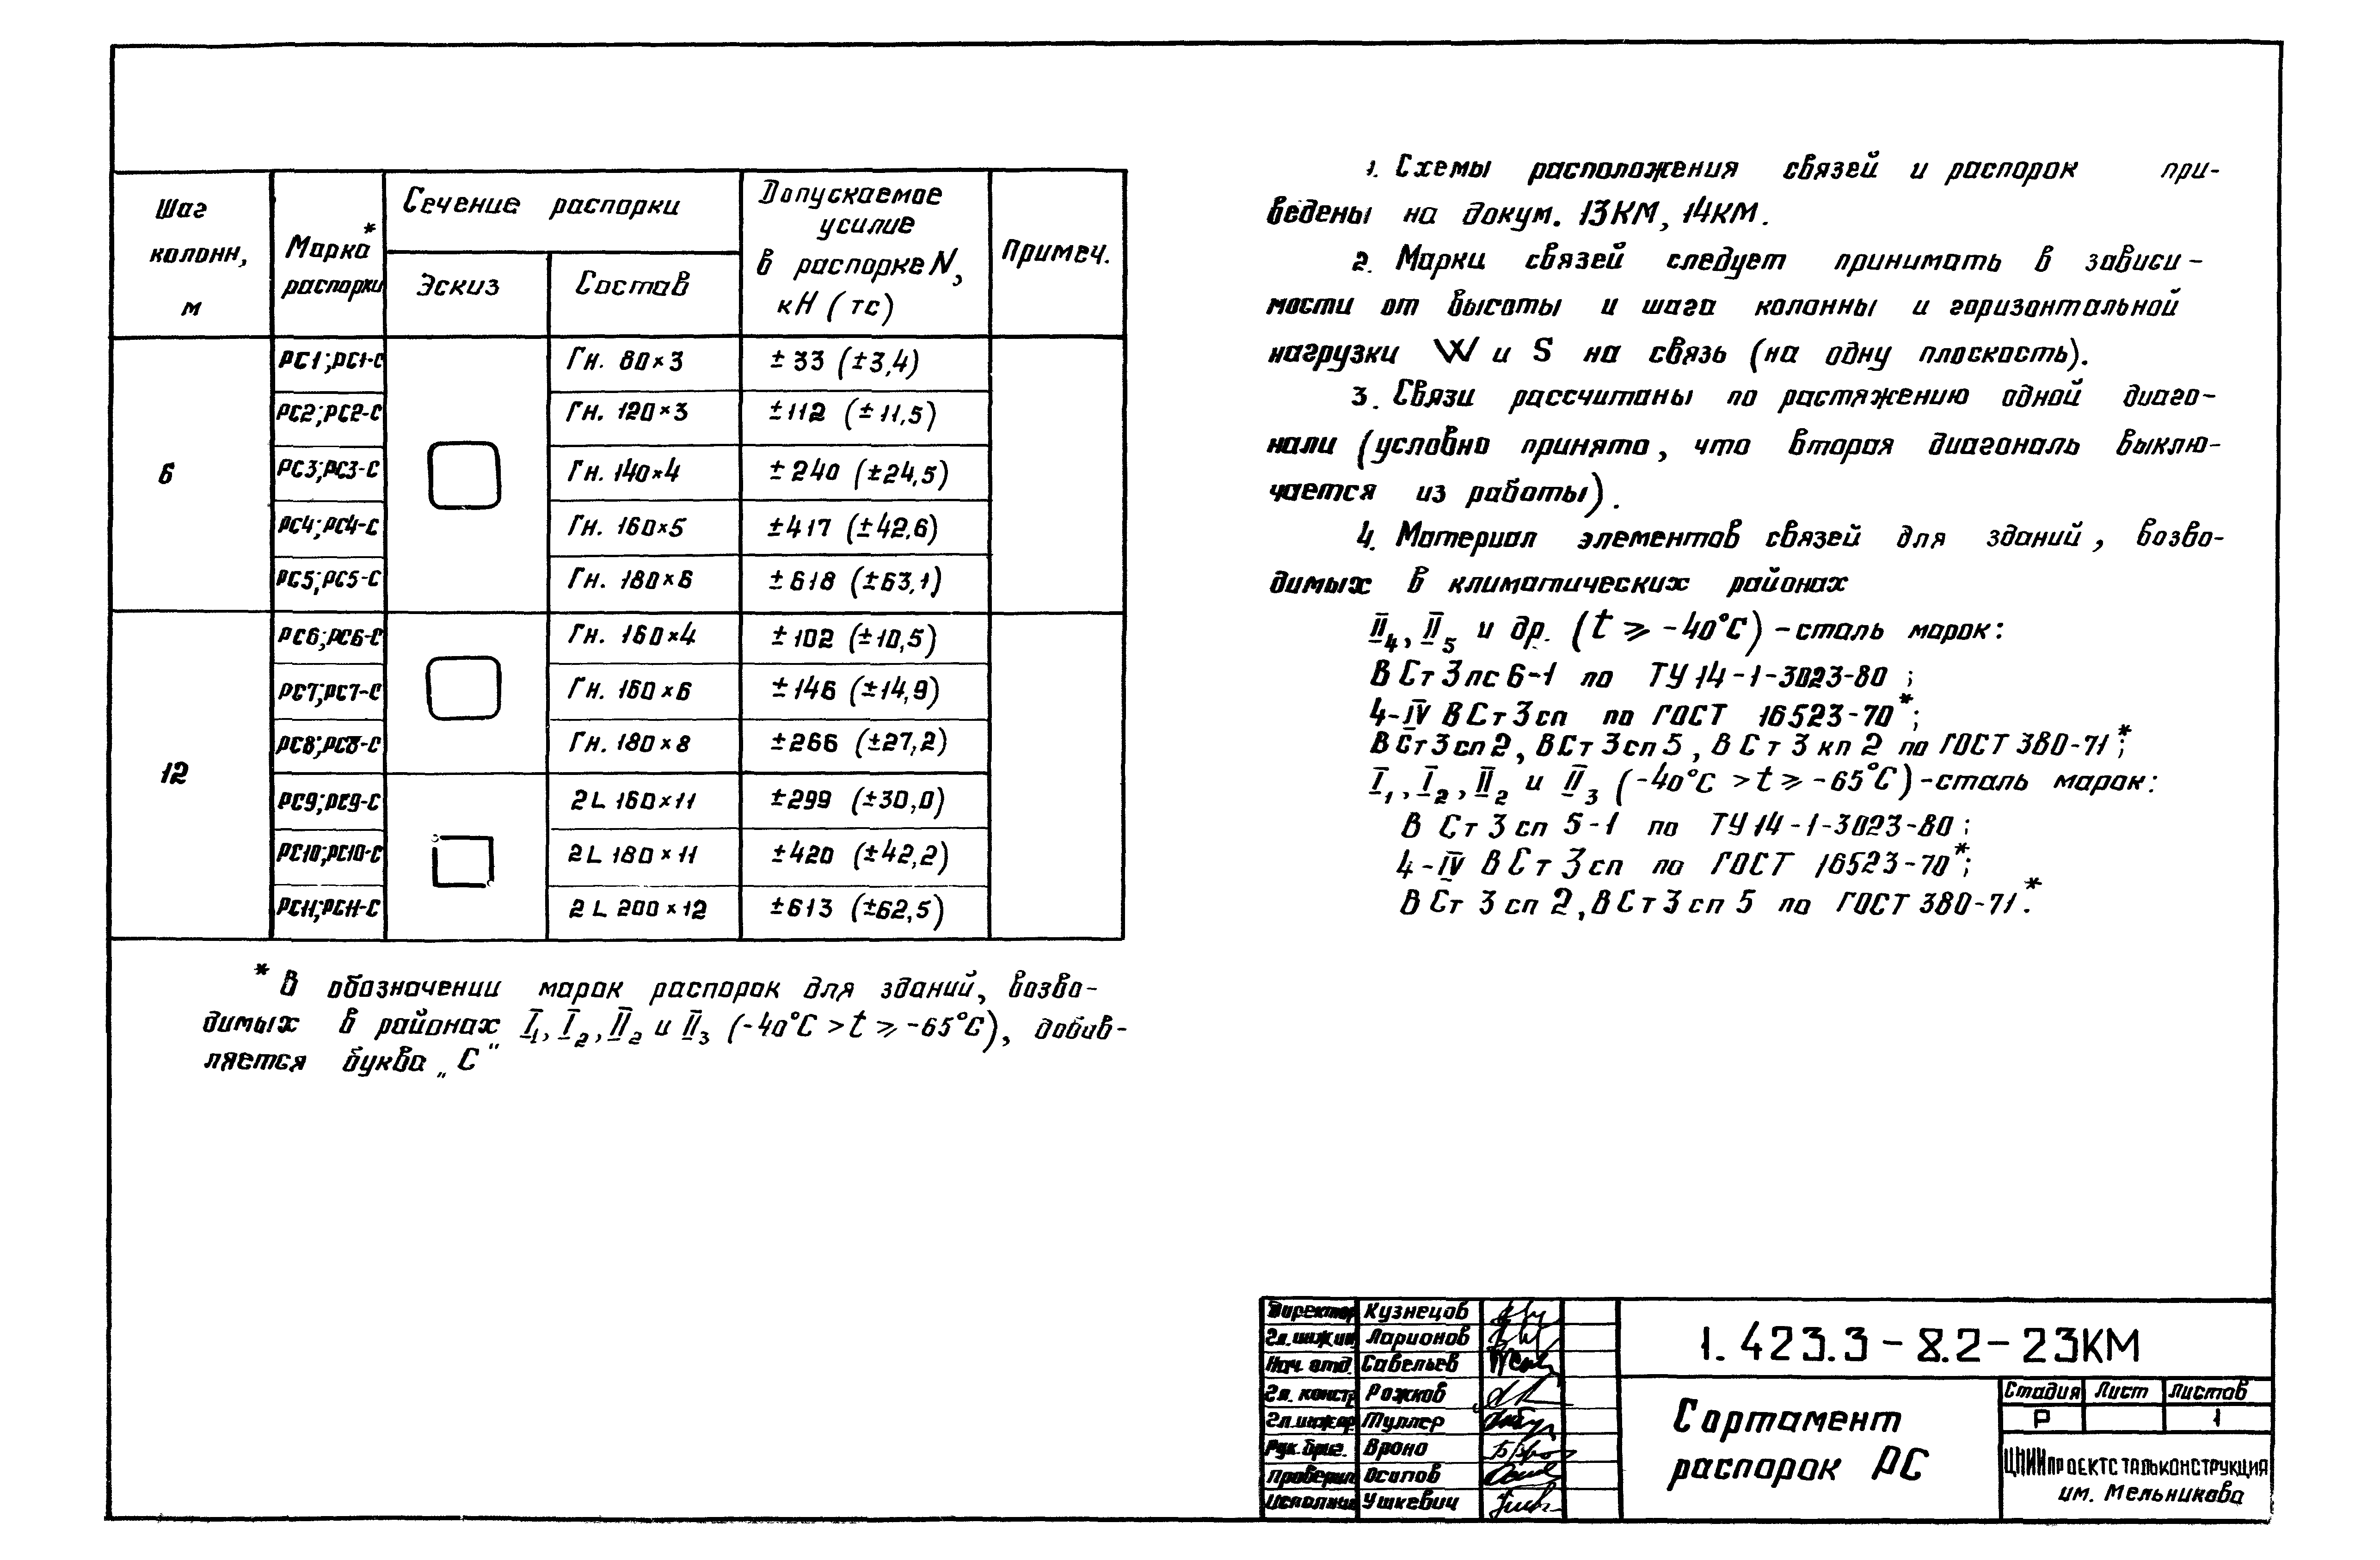 Шаг колонн, м
Марка* распорки
Сечение распорки
Эскиз
Состав
Допускаемое усилие в распорке N, кН (тс)
Примеч.
6
РС1; РС1-С Гн. 80×3 ±33 (±3,4)
РС2; РС2-С Гн. 120×3 ±112 (±11,5)
РС3; РС3-С Гн. 140×4 ±240 (±24,5)
РС4; РС4-С Гн. 160×5 ±417 (±42,6)
РС5; РС5-С Гн. 180×6 ±618 (±63,1)
12
РС6; РС6-С Гн. 160×4 ±102 (±10,5)
РС7; РС7-С Гн. 160×6 ±146 (±14,9)
РС8; РС8-С Гн. 180×8 ±266 (±27,2)
РС9; РС9-С 2L 160×11 ±299 (±30,0)
РС10; РС10-С 2L 180×11 ±420 (±42,2)
РС11; РС11-С 2L 200×12 ±613 (±62,5)
* В обозначении марок распорок для зданий, возво-
димых в районах I₁, I₂, II₂ и II₃ (-40°С > t ⩾ -65°С), добав-
ляется буква „С"
1. Схемы расположения связей и распорок при-
ведены на докум. 13КМ, 14КМ.
2. Марки связей следует принимать в зависи-
мости от высоты и шага колонны и горизонтальной
нагрузки W и S на связь (на одну плоскость).
3. Связи рассчитаны по растяжению одной диаго-
нали (условно принято, что вторая диагональ выклю-
чается из работы).
4. Материал элементов связей для зданий, возво-
димых в климатических районах
II₄, II₅ и др. (t ⩾ -40°С) - сталь марок:
В Ст 3 пс 6-1 по ТУ 14-1-3023-80;
4-IV В Ст 3 сп по ГОСТ 16523-70*;
В Ст 3 сп 2, В Ст 3 сп 5, В Ст 3 кп 2 по ГОСТ 380-71*;
I₁, I₂, II₂ и II₃ (-40°С > t ⩾ -65°С) - сталь марок:
В Ст 3 сп 5-1 по ТУ 14-1-3023-80;
4-IV В Ст 3 сп по ГОСТ 16523-70*;
В Ст 3 сп 2, В Ст 3 сп 5 по ГОСТ 380-71*.
Директор Кузнецов
Гл. инж. ин Ларионов
Нач. отд. Савельев
Гл. констр. Рожков
Гл. инж. пр Туллер
Рук. бриг. Врона
Проверил Осипов
Исполнил Ушкевич
1.423.3-8.2-23КМ
Сортамент
распорок РС
Стадия Лист Листов
Р 1
ЦНИИПРОЕКТСТАЛЬКОНСТРУКЦИЯ
им. Мельникова